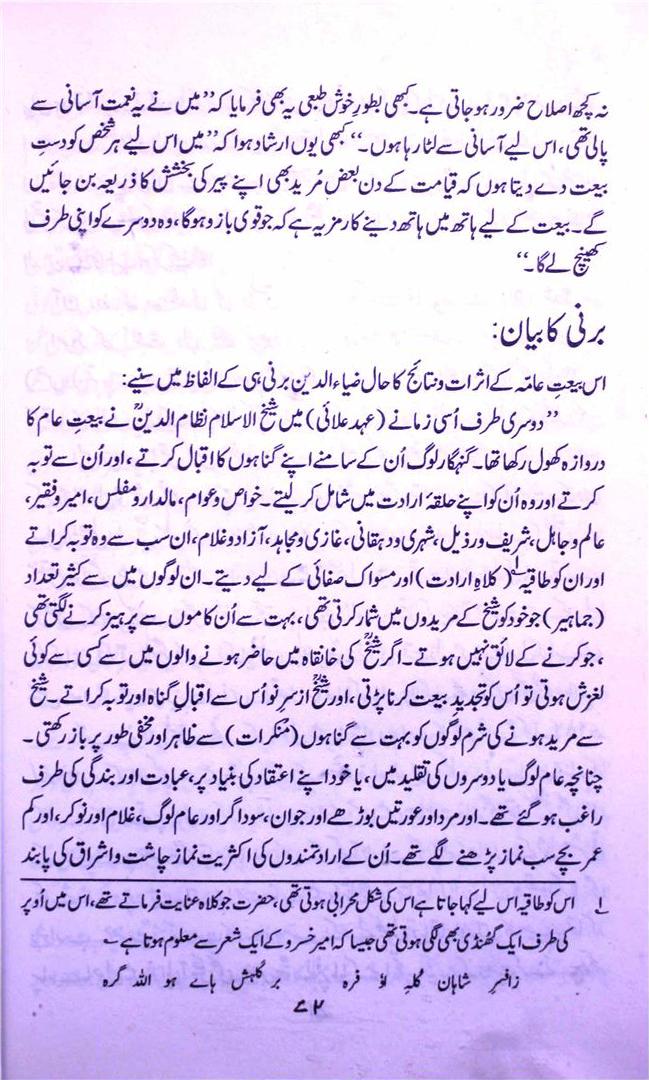 نہ کچھ اصلاح ضرور ہو جاتی ہے۔ کبھی بطورِ خوش طبعی یہ بھی فرمایا کہ ’’میں نے یہ نعمت آسانی سے
پالی تھی، اس لیے آسانی سے لٹا رہا ہوں۔‘‘ کبھی یوں ارشاد ہوا کہ ’’میں اس لیے ہر شخص کو دستِ
بیعت دے دیتا ہوں کہ قیامت کے دن بعض مُرید بھی اپنے پیر کی بخشش کا ذریعہ بن جائیں
گے۔ بیعت کے لیے ہاتھ میں ہاتھ دینے کا رمز یہ ہے کہ جو قوی بازو ہوگا، وہ دوسرے کو اپنی طرف
کھینچ لے گا۔‘‘
برنی کا بیان:
اس بیعتِ عامّہ کے اثرات و نتائج کا حال ضیاء الدین برنی ہی کے الفاظ میں سنیے:
’’دوسری طرف اُسی زمانے (عہد علائی) میں شیخ الاسلام نظام الدینؒ نے بیعتِ عام کا
دروازہ کھول رکھا تھا۔ گنہگار لوگ اُن کے سامنے اپنے گناہوں کا اقبال کرتے، اور اُن سے توبہ
کرتے اور وہ اُن کو اپنے حلقۂ ارادت میں شامل کر لیتے۔ خواص و عوام، مالدار و مفلس، امیر و فقیر،
عالم و جاہل، شریف و رذیل، شہری و دہقانی، غازی و مجاہد، آزاد و غلام، ان سب سے وہ توبہ کراتے
اور ان کو طاقیہ۱ (کلاہِ ارادت) اور مسواک صفائی کے لیے دیتے۔ ان لوگوں میں سے کثیر تعداد
(جماہیر) جو خود کو شیخ کے مریدوں میں شمار کرتی تھی، بہت سے اُن کاموں سے پرہیز کرنے لگتی تھی
، جو کرنے کے لائق نہیں ہوتے۔ اگر شیخؒ کی خانقاہ میں حاضر ہونے والوں میں سے کسی سے کوئی
لغزش ہوتی تو اُس کو تجدیدِ بیعت کرنا پڑتی، اور شیخؒ از سرِ نو اُس سے اقبالِ گناہ اور توبہ کراتے۔ شیخ
سے مرید ہونے کی شرم لوگوں کو بہت سے گناہوں (منکرات) سے ظاہر اور مخفی طور پر باز رکھتی۔
چنانچہ عام لوگ یا دوسروں کی تقلید میں، یا خود اپنے اعتقاد کی بنیاد پر، عبادت اور بندگی کی طرف
راغب ہو گئے تھے۔ اور مرد اور عورتیں بوڑھے اور جوان، سوداگر اور عام لوگ، غلام اور نوکر، اور کم
عمر بچے سب نماز پڑھنے لگے تھے۔ اُن کے ارادتمندوں کی اکثریت نماز چاشت و اشراق کی پابند
۱ اس کو طاقیہ اس لیے کہا جاتا ہے اس کی شکل محرابی ہوتی تھی، حضرت جو کلاہ عنایت فرماتے تھے، اس میں اُوپر
کی طرف ایک گھنڈی بھی لگی ہوتی تھی جیسا کہ امیر خسرو کے ایک شعر سے معلوم ہوتا ہے ؎
زافسرِ شاہاں کُلہِ اُو فرہ    بر کلہش ہاے ہو اللہ گرہ
۷۲